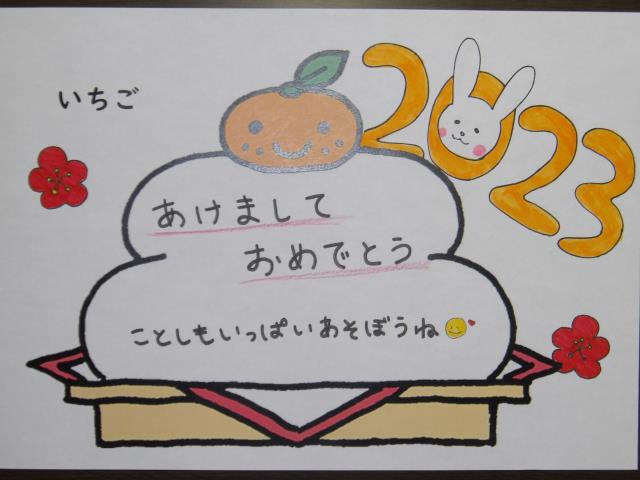 いちご
2023
あけまして
おめでとう
ことしもいっぱいあそぼうね